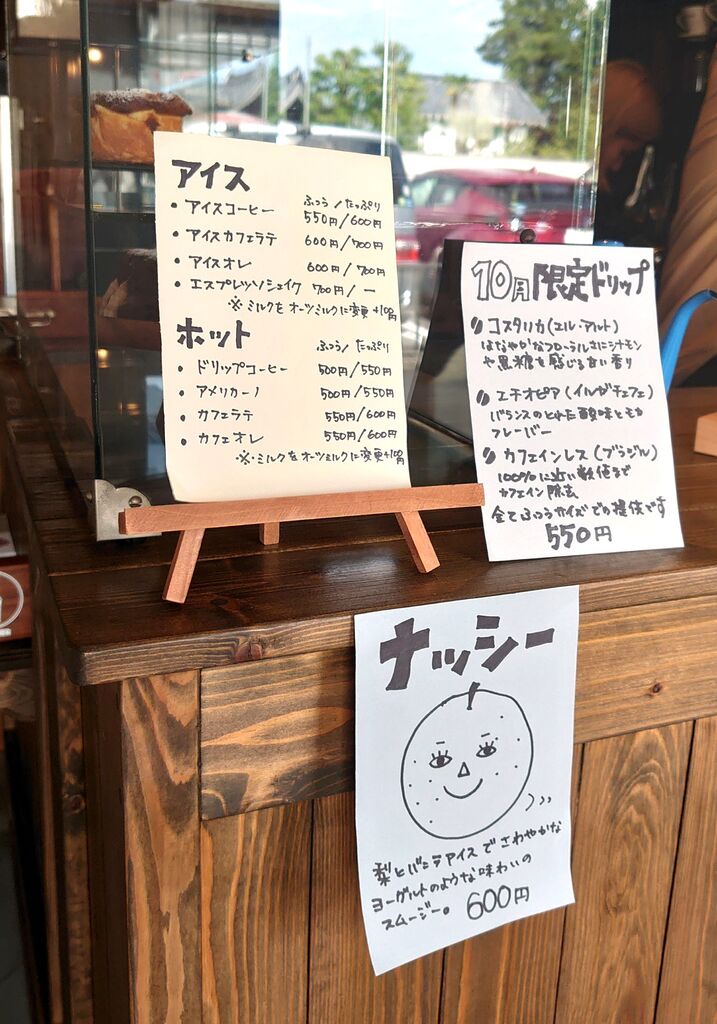 アイス
ふつう/たっぷり
・アイスコーヒー 550円/600円
・アイスカフェラテ 600円/700円
・アイスオレ 600円/700円
・エスプレッソシェイク 700円/ー
※ミルクをオーツミルクに変更+100円
ホット
ふつう/たっぷり
・ドリップコーヒー 500円/550円
・アメリカーノ 500円/550円
・カフェラテ 550円/600円
・カフェオレ 550円/600円
※ミルクをオーツミルクに変更+100円
10月限定ドリップ
コスタリカ(エル・アルト)
はなやかなフローラルさにシナモン
や黒糖を感じる甘い香り
エチオピア(イルガチェフェ)
バランスのとれた酸味ともも
フレーバー
カフェインレス(ブラジル)
100%に近い数値まで
カフェイン除去
全てふつうサイズでの提供です
550円
ナッシー
梨とバニラアイスでさわやかな
ヨーグルトのような味わいの
スムージー。600円